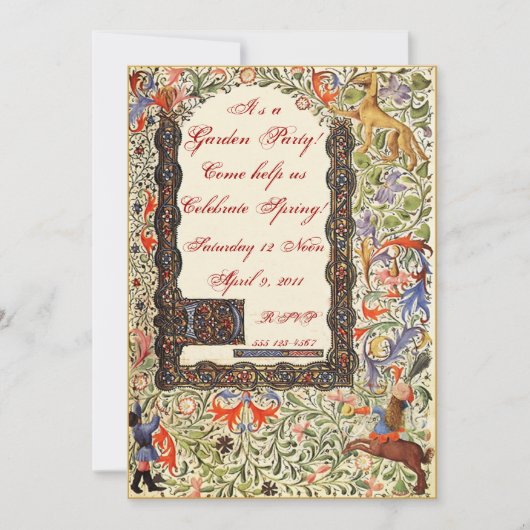 It's a
Garden Party!
Come help us
Celebrate Spring!
Saturday 12 Noon
April 9, 2011
RSVP
555 123-4567